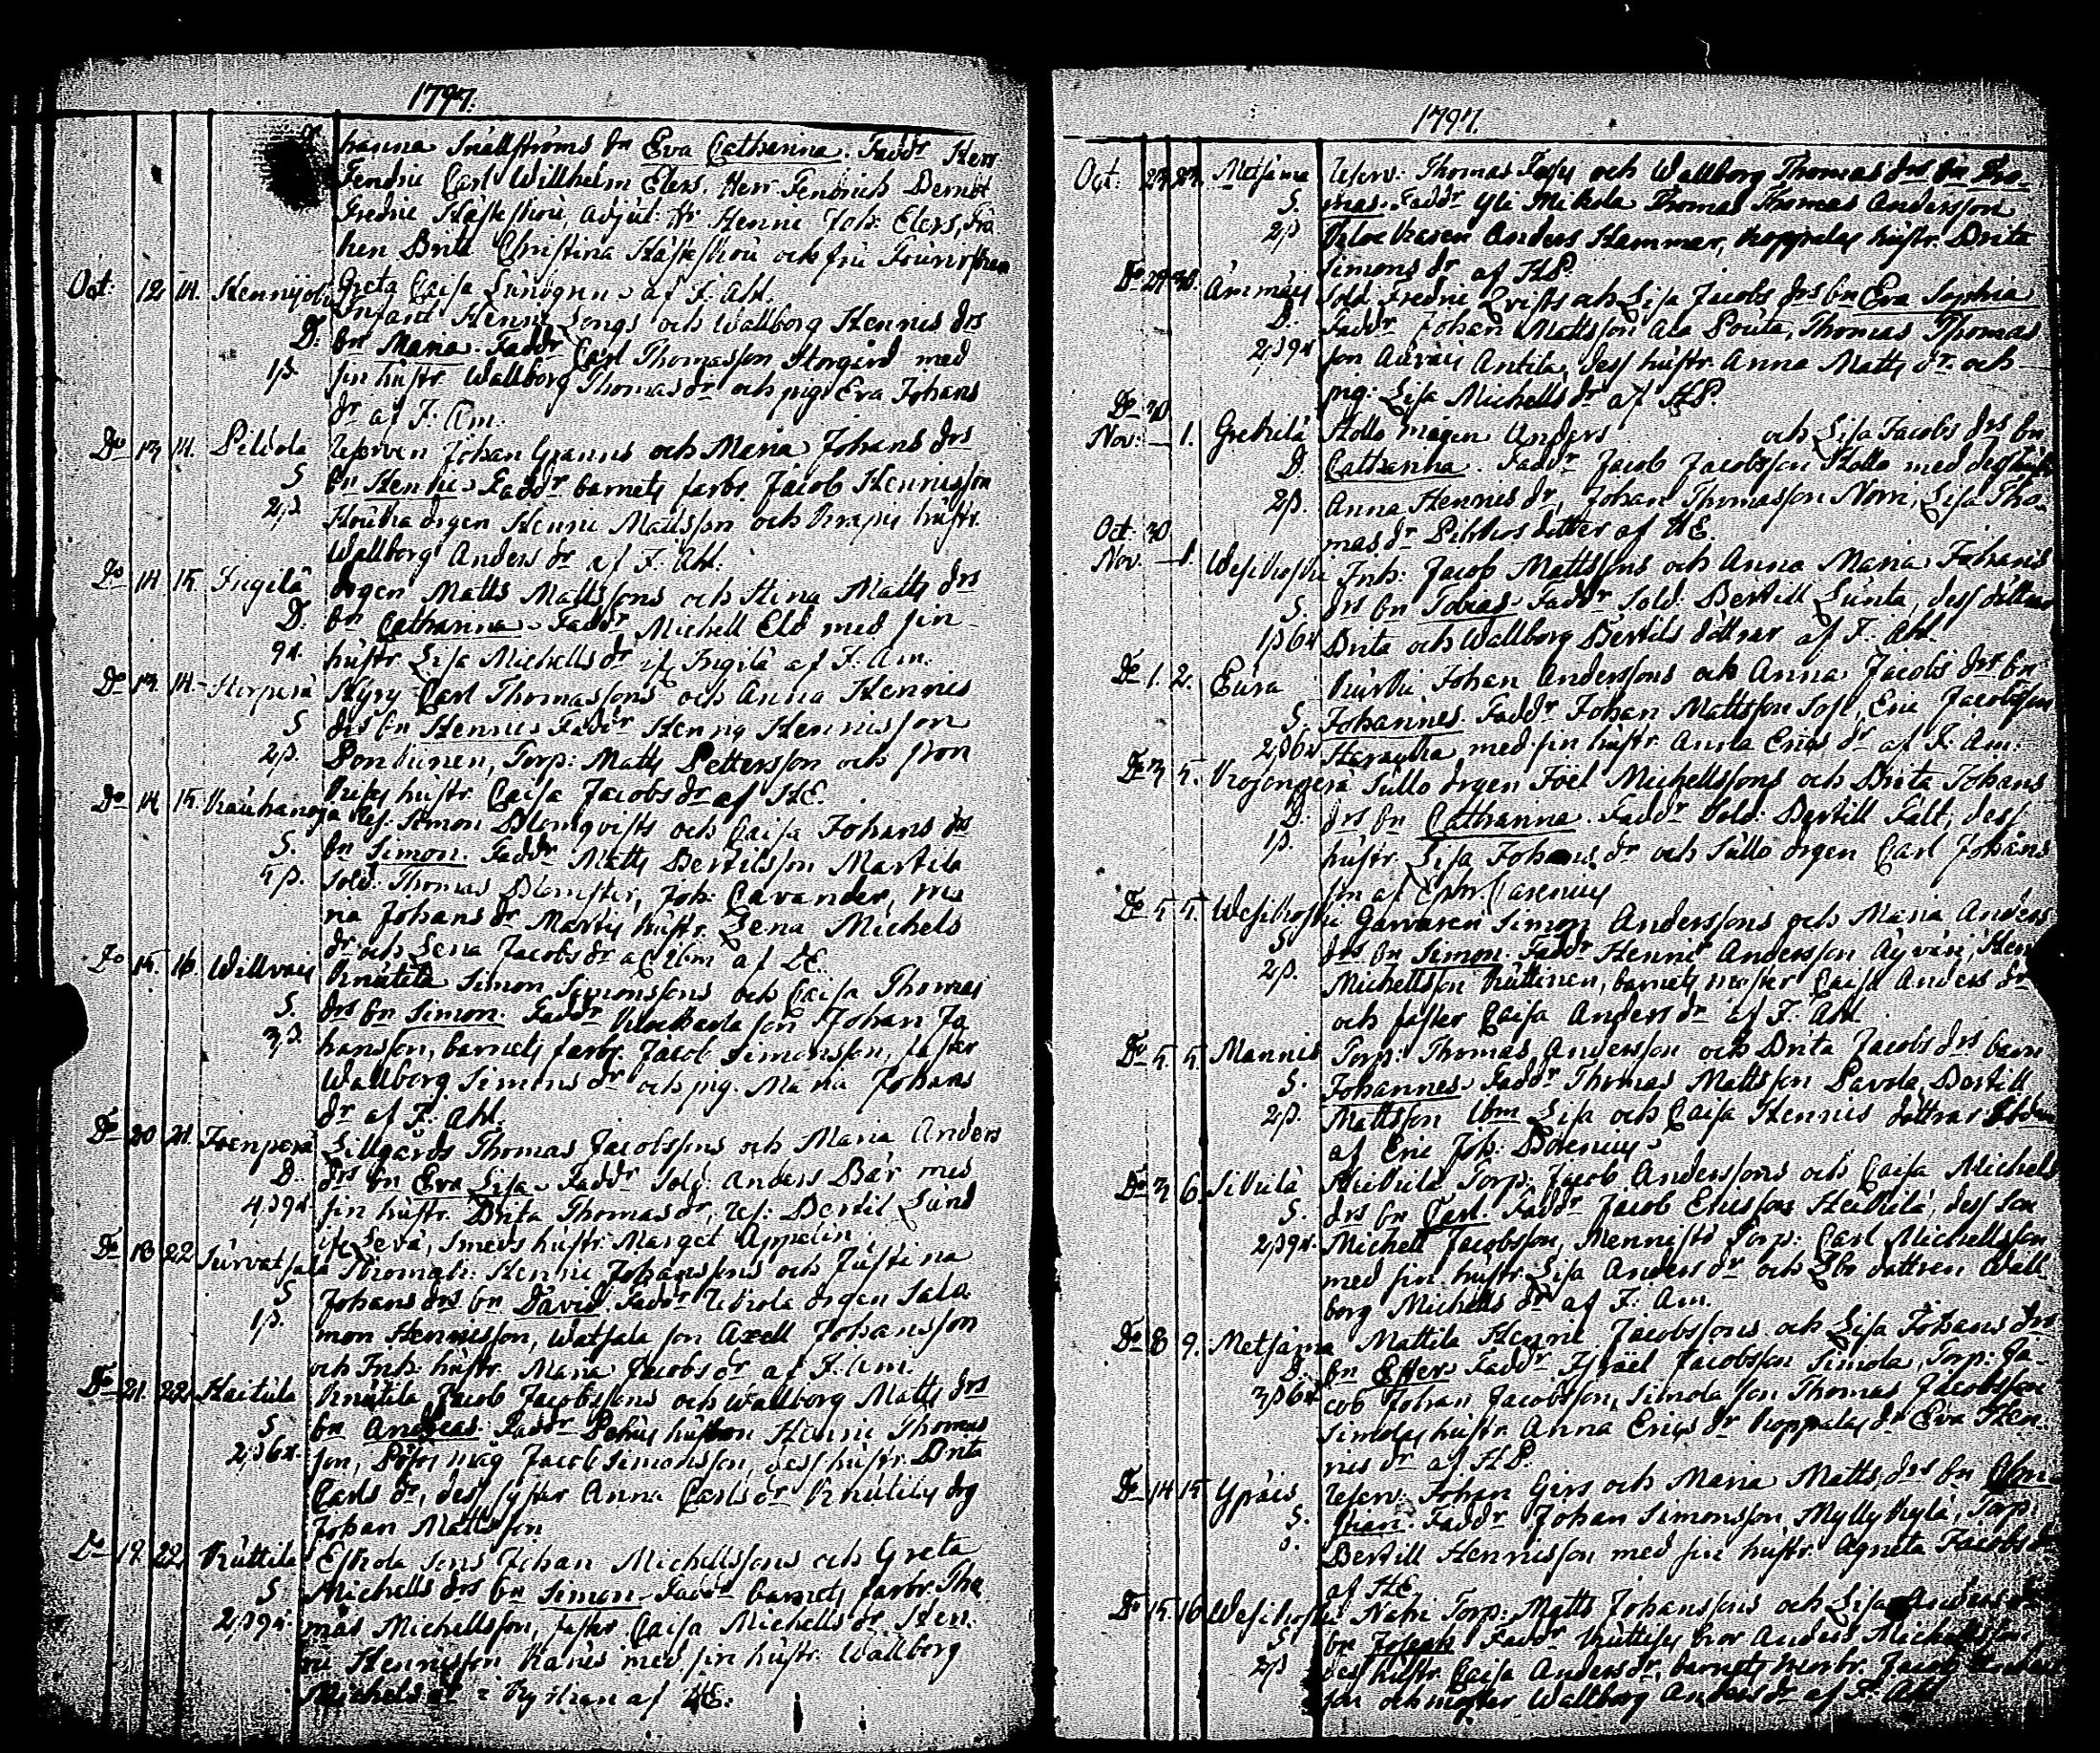 1797.
hanna Snällströms dr Eva Catharina. Faddr Herr
Fendric Carl Willhelm Elers, Herr Fendrich Berndt
Fredric Hästeskou, Adjut: Hr Henric Joh: Elers, Frö
ken Brita Christina Hästeskou och fru
Greta Caisa Lundgren af F: Ahl.
Oct: 12 14. Hennijoki Infant Henric Longs och Wallborg Hennis drs
D. bn Maria. Faddr Carl Thomasson Storgård med
1ß. sin hustr. Wallborg Thomasdr och pig: Eva Johans
dr af F: Am.
Do 13 14. Pildola Reserven Johan Granns och Maria Johans drs
S bn Henric. Faddr barnets farbr. Jacob Hennisson
2ß drgen Henric Mattsson och hustr.
Wallborg Anders dr af F: Ahl.
Do 14. 15. Ingilä drgen Matts Mattssons och Stina Matts drs
D. bn Catharina. Faddr Michell Eld med sin
9r. hustr. Lisa Michells dr if. Ingilä af F: Am.
Do 13. 14. Korperä Kyry Carl Thomassons och Anna Hennis
S drs bn Henric. Faddr Henrig Hennisson
2ß. Torp: Matts Pettersson och
hustr. Caisa Jacobs dr af HE.
Do 14 15. Kauhanoja Res: Simon Blomqvists och Caisa Johans drs
S. bn Simon. Faddr Matts Bertilsson Martila
5ß. Sold: Thomas Blomster, Joh: Cavander, Ma
ria Johans dr Martis hustr. Lena Michels
dr och Lena Jacobs dr af ibm af HE.
Do 15. 16. Willvais Knutila Simon Simonssons och Caisa Thomas
S. drs bn Simon. Faddr Klockarla son Johan Jo
3ß. hansson, barnets farbr. Jacob Simonsson, faster
Wallborg Simons dr och pig. Maria Johans
dr af F: Ahl.
Do 20 21. Isenperä Lillgårds Thomas Jacobssons och Maria Anders
D. drs bn Eva Lisa. Faddr Sold: Anders Bär med
4ß9r. sin hustr. Brita Thomas dr, Res: Bertil Lund
if Levä, Smeds hustr. Marget Appelin.
Do 18 22 Survatsala Henric Johanssons och Justina
S Johans drs bn David. Faddr Uckola drgen Salo
1ß. mon Hennisson, Watsala son Axell Johansson
och Inh: hustr. Maria Jacobs dr af F: Am.
Do 21. 22. Haitula Knutila Jacob Jacobssons och Wallborg Matts drs
S bn Andreas. Faddr Henric Thomas
2ß6r. son, måg Jacob Simonsson, dess hustr. Brita
Carls dr, dess syster Anna Carls dr Knutilas drg
Johan Mattsson
Do 19. 22. Kuttila Eskola sons Johan Michellssons och Greta
S Michells drs bn Simon. Faddr barnets farbr. Tho
2ß9r. mas Michellsson, faster Caisa Michells dr. Hen
ric Hennisson med sin hustr. Wallborg
Michels dr i Kyttian af HE.
1797.
Oct: 27. 29. Metsäma Reserv: Thomas och Wallborg Thomas drs bn Tho-
S. mas. Faddr Yli Mikola Thomas Thomas Andersson
2ß Klockaren Anders Hammar, Koppelas hustr. Brita
Simons dr af HP.
Do 29 30. Ämmäis Sold. Fredric Qvists och Lisa Jacobs drs bn Eva Sophia
D. Faddr Johan Mattsson Ala Pouta, Thomas Thomas
2ß9r. son Auvais Antila, dess hustr. Anna Matts dr. och
pig: Lisa Michells dr af HP.
Do 30
Nov: — 1. Grekilä Hollo mågen Anders och Lisa Jacobs drs bn
D. Catharina. Faddr Jacob Jacobsson Hollo med dess hustr
2ß. Anna Hennis dr, Johan Thomasson Norri, Lisa Tho-
mas dr Pikkos dotter af HE.
Oct: 30
Nov. — 1. Wesikoski Inh: Jacob Mattssons och Anna Maria Johans
S. drs bn Tobias. Faddr Sold: Bertill Lunta, dess döttrar
1ß6r Brita och Wallborg Bertils döttrar af F: Ahl.
Do 1. 2. Eura Johan Anderssons och Anna Jacobs drs bn
S. Johannes. Faddr Johan Mattsson Eric Jacobsson
2ß6r med sin hustr. Anna Erics dr af F: Am.
Do 3 5. Krojonperä Sullo drgen Joel Michellssons och Brita Johans
D. drs bn Catharina. Faddr Sold: Bertill Fält, dess
1ß. hustr. Lisa Johans dr och Sullo drgen Carl Johans
son af Ephr. Carenius
Do 5 5. Wesikoski Garvaren Simon Anderssons och Maria Anders
S drs bn Simon. Faddr Henric Andersson Äyväri, Hen
2ß. Michellsson Kuttinen, barnets moster Caisa Anders dr
och faster Caisa Anders dr af F: Ahl.
Do 5. 5. Mannis Torp: Thomas Andersson och Brita Jacobs drs barn
S. Johannes. Faddr Thomas Mattsson Pavola, Bertill
2ß. Mattsson ibm Lisa och Caisa Hennis döttrar
af Eric Joh: Borenius.
Do 3 6. Sikilä Torp: Jacob Anderssons och Caisa Michels
S. drs bn Carl. Faddr Jacob Ericsson Heikilä, dess son
2ß9r. Michell Jacobsson, Mennistö Torp: Carl Michellsson
med sin hustr. Lisa Anders dr och dottren Wall-
borg Michells dr af F: Am.
Do 8 9. Metsäma Mattila Henric Jacobssons och Lisa Johans drs
D. bn Ester. Faddr Israel Jacobsson Simola, Torp: Ja-
3ß6r cob Johan Jacobsson, Simola son Thomas Jacobsson
Simolas hustr. Anna Erics dr Koppalas dr Eva Hen
nis dr af HP.
Do 14 15 Ypäis Reserv: Johan Girs och Maria Matts drs bn
S. Faddr Johan Simonsson Myllykylä, Torp:
Bertill Hennisson med sin hustr. Agneta Jacobs dr
af HE
Do 15 16 Wesikoski Torp: Matts Johanssons och Lisa Anders
S bn Joseph. Faddr bror Anders
2ß dess hustr. Caisa Anders dr, barnets morbr. Jacob
son och moster Wallborg Anders dr af F: Ahl